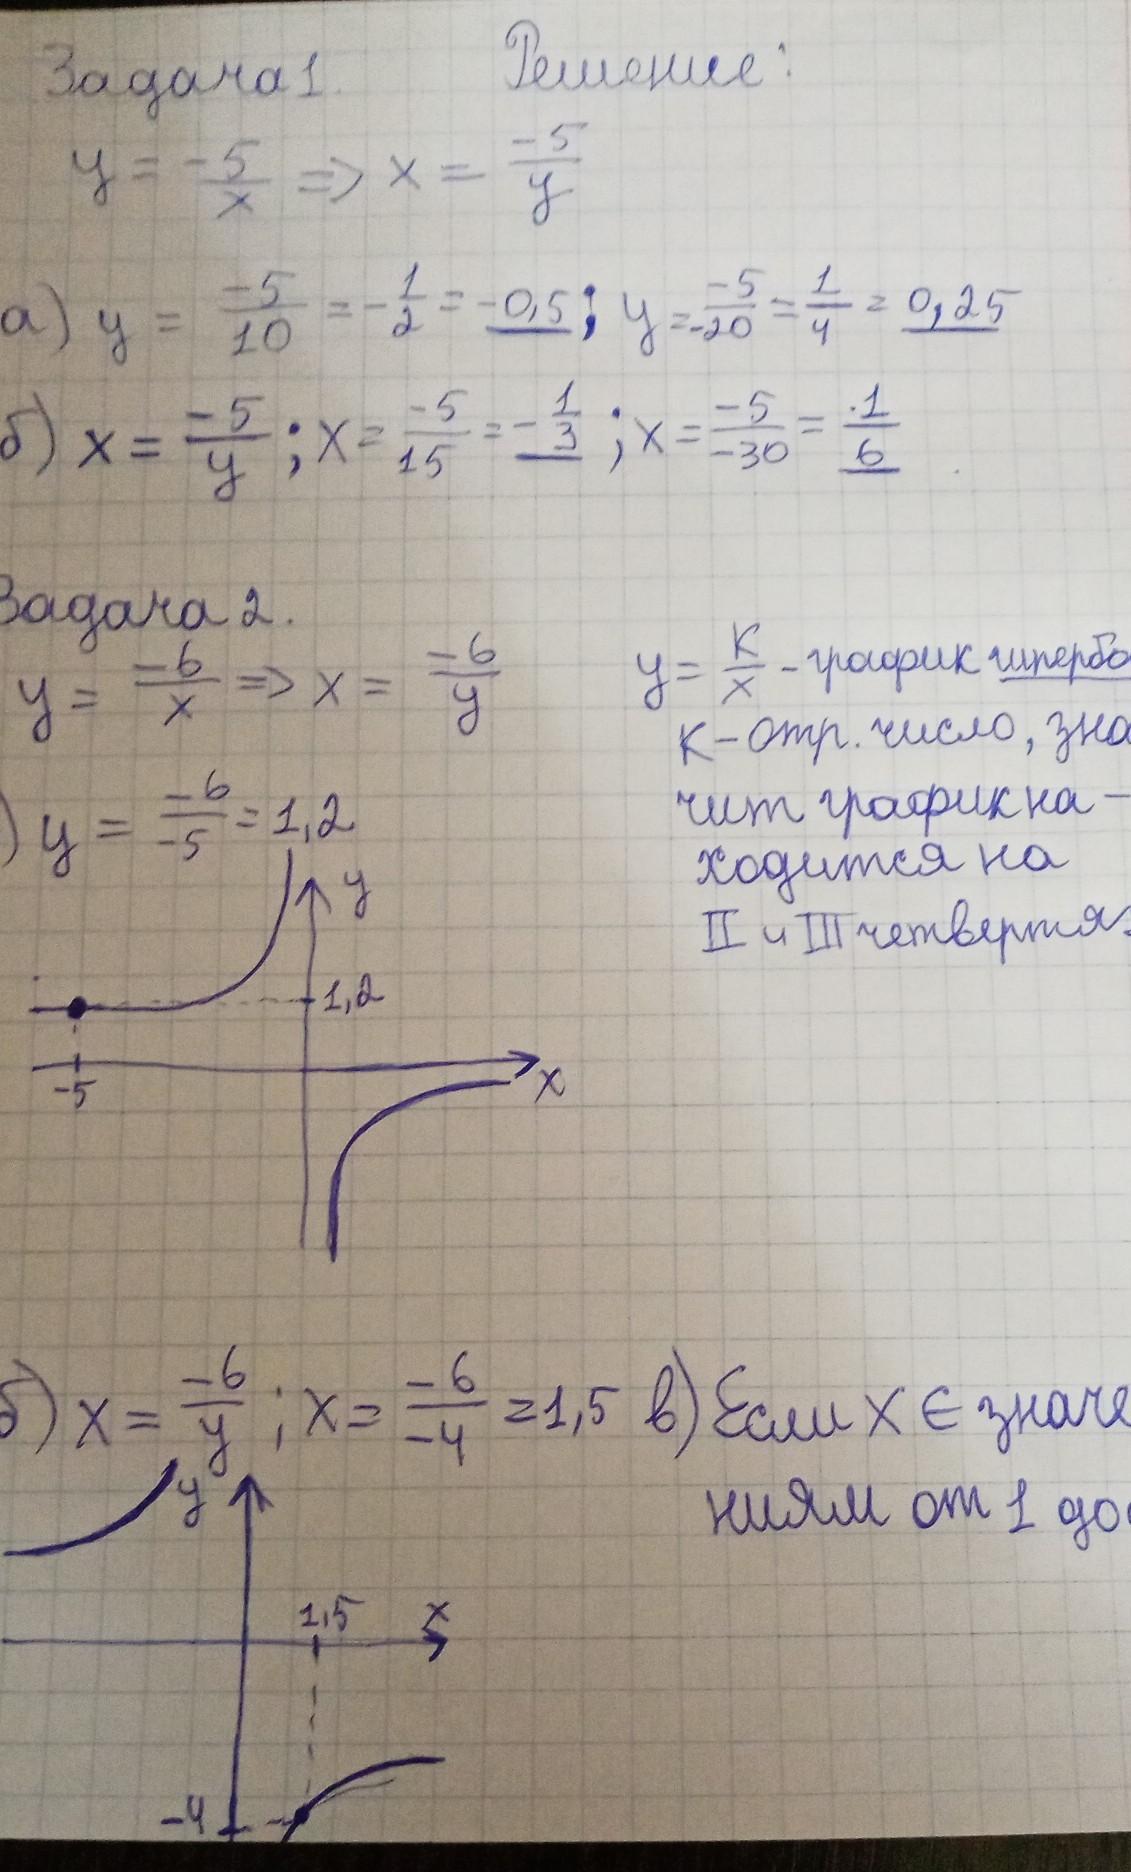 Задача 1. Решение:
y = -5/x => x = -5/y
а) y = -5/10 = -1/2 = -0,5; y = -5/-20 = 1/4 = 0,25
б) x = -5/y; x = -5/15 = -1/3; x = -5/-30 = 1/6
Задача 2.
y = -6/x => x = -6/y
) y = -6/-5 = 1,2
y = к/x - график гипербо
к - отр. число, зна
чит график на -
ходится на
II и III четвертях
y
1,2
-5
x
б) x = -6/y; x = -6/-4 = 1,5
в) Если x ∈ значе
ниям от 1 до
y
1,5
x
-4